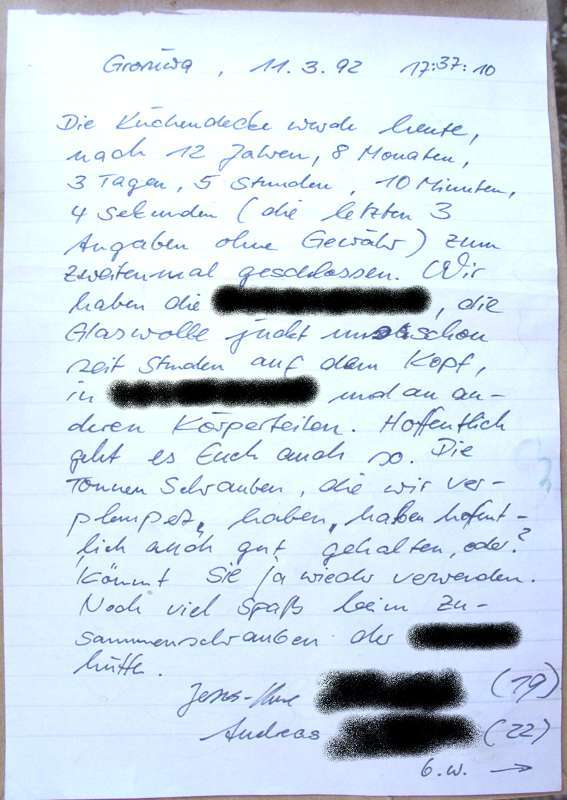 Gronwa, 11.3.92 17:37:10
Die Küchendecke wurde heute,
nach 12 Jahren, 8 Monaten,
3 Tagen, 5 Stunden, 10 Minuten,
4 Sekunden (die letzten 3
Angaben ohne Gewähr) zum
zweitenmal geschlossen. Wir
haben die , die
Glaswolle juckt uns schon
seit Stunden auf dem Kopf,
in und an an-
deren Körperteilen. Hoffentlich
geht es Euch auch so. Die
Tonnen Schrauben, die wir ver-
plempert, haben, haben hoffent-
lich auch gut gehalten, oder?
Könnt Sie ja wieder verwenden.
Noch viel Spaß beim Zu-
sammenschrauben der
hütte.
Jens- (19)
Andreas (22)
b.w. →